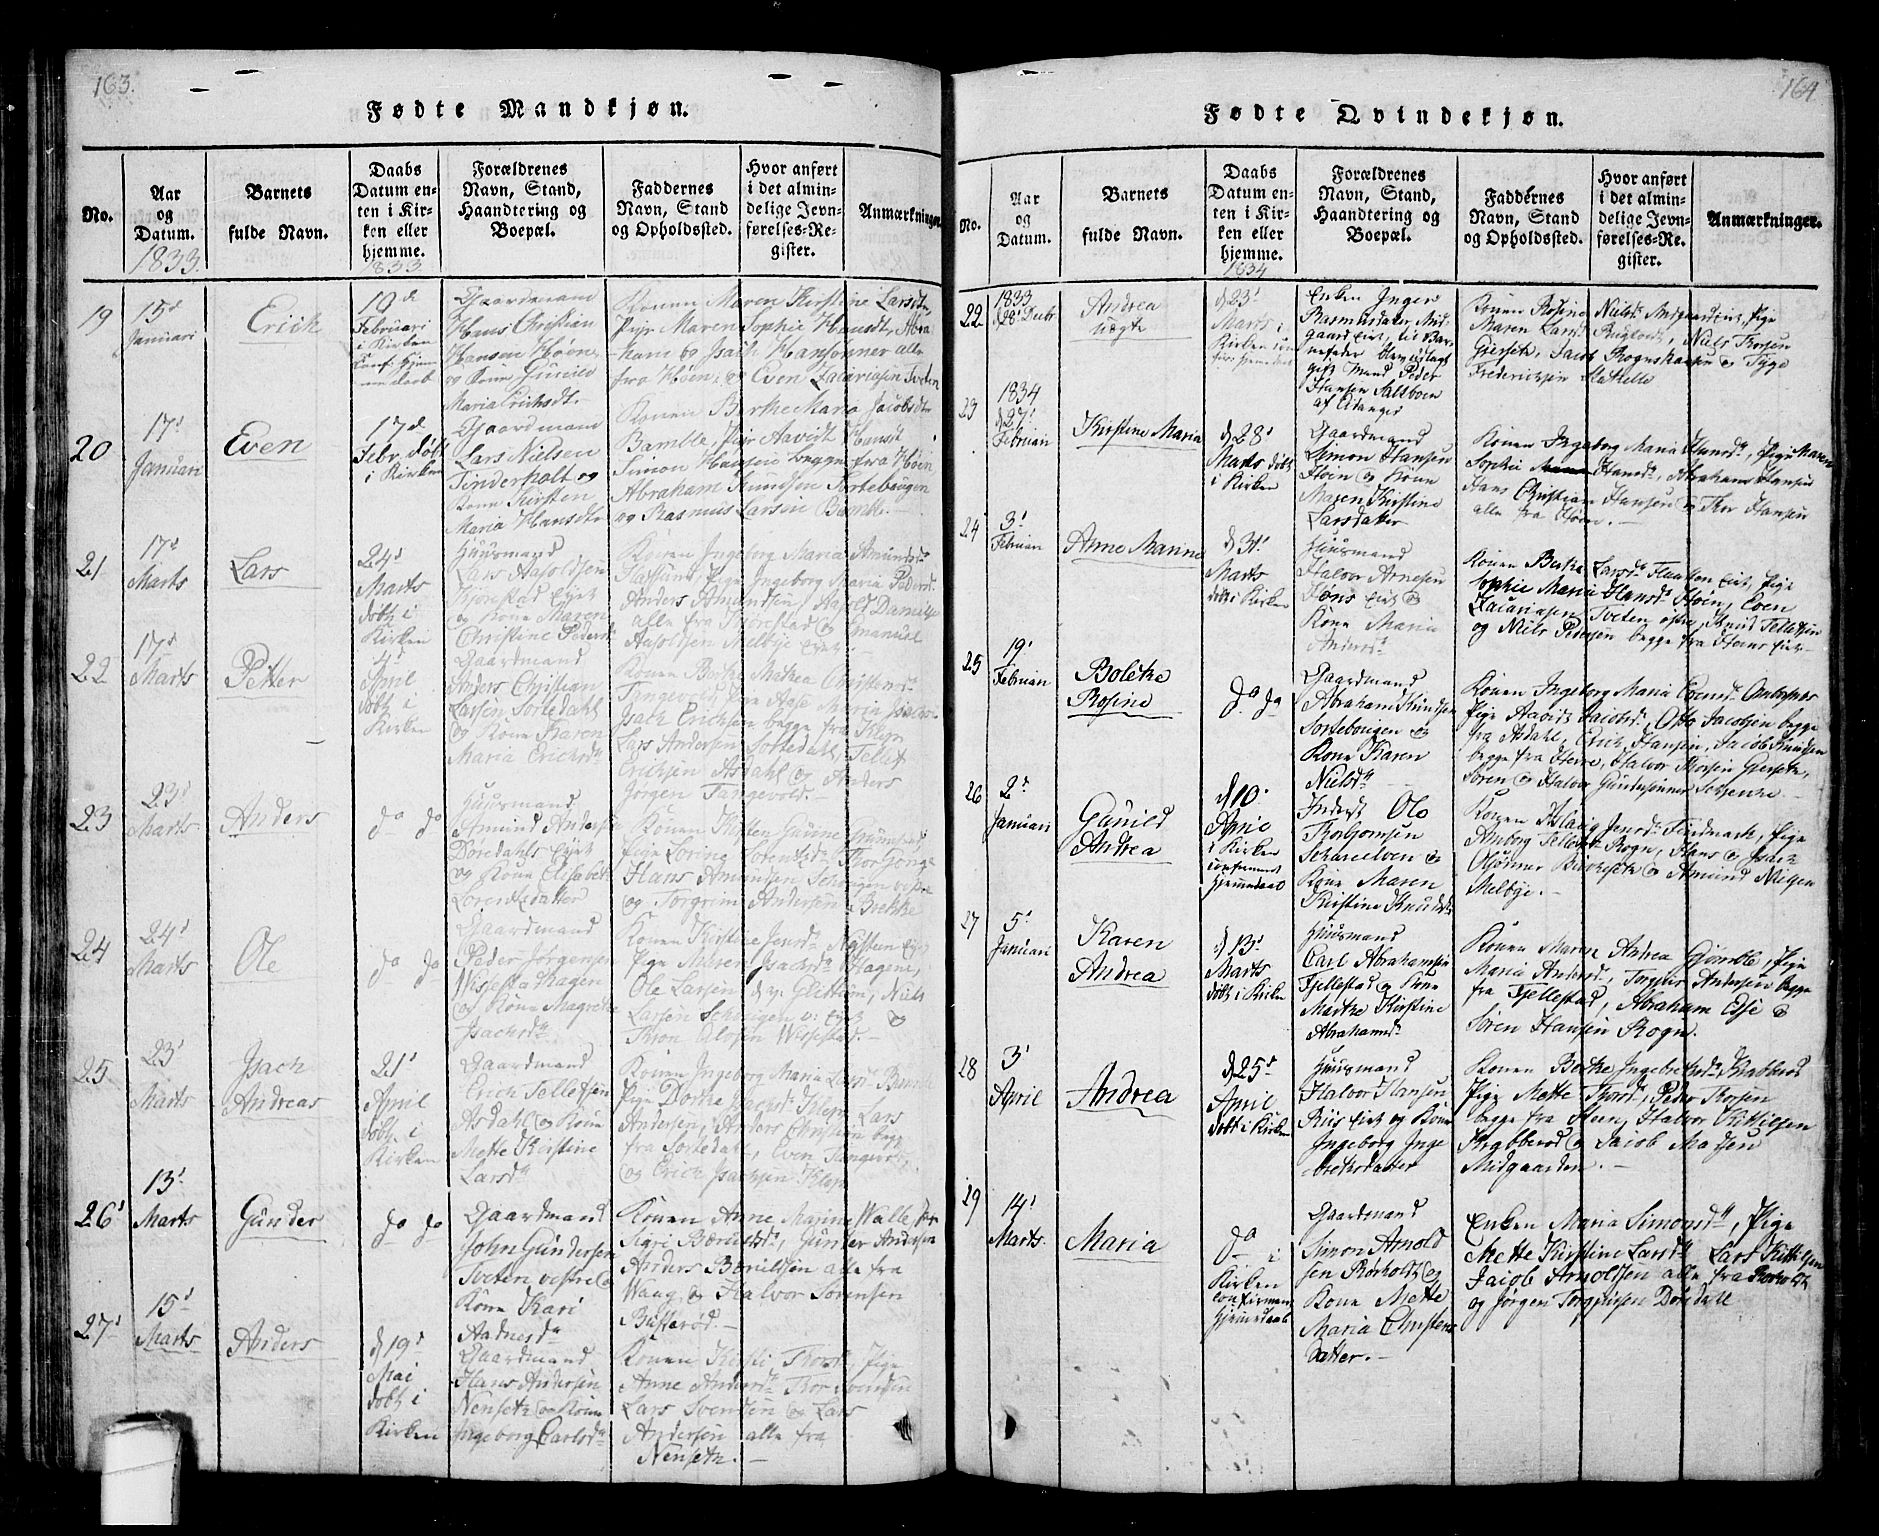 163.
Fødte Mandkjøn.
No.
Aar
og
Datum.
1833.
Barnets
fulde Navn.
Daabs
Datum en-
ten i Kir-
ken eller
hjemme.
1833
Forældrenes
Navn, Stand,
Haandtering og
Boepæl.
Faddernes
Navn, Stand
og Opholdssted.
Hvor anført
i det almin-
delige Jevn-
førelses-Re-
gister.
Anmærkninger.
19
15d
Januari
Erich
19de
Februari
i Kirken
Gaardmand
Hans Christian
Hansen Høen
og Kone Gunild
Maria Erichsdr
Konen Maren Kirstine Larsdr,
Pige Maren Sophie Hansdr, Abra
ham og Isach Hansønner alle
fra Høen, og Even Zacariasen Tveten
20
17d
Januari
Even
17de
Febr. døbt
i Kirken
Gaardmand
Lars Nielsen
Tinderholt og
Kone Kirsten
Maria Hansdtr
Konen Berthe Maria Jacobsdtr
Bamble, Pige Aavidt Hansdt
Simon Hansen begge fra Høen
Abraham Knudsen Sortebougen
og Rasmus Larsen Bamble.
21
17d
Marts
Lars
24d
Marts
døbt i
Kirken
Huusmand
Lars Aasoldsen
og Kone Maren
Christine Peders
Konen Ingeborg Maria Amunds
Pige Ingeborg Maria Peders
Anders Amundsen, Aasold Daniels
alle fra Emanuel
Aasoldsen Melbye
22
17d
Marts
Petter
4d
April
døbt i
Kirken
Gaardmand
Anders Christian
Larsen Sortedahl
og Kone Karen
Maria Erichsdr
Konen Berthe Mathea Christensd
Tangevold, Pige Aase Maria Isachs
Isach Erichsen begge fra Klep
Lars Andersen Sortedahl, Tellef
Erichsen Asdahl og Anders
Jørgen Tangevold.
23
23d
Marts
Anders
do do
Huusmand
Amund Anders
Døredahls Eyet
og Kone Elisabet
Lorentzdatter
Konen Kirsten
Pige Lorine Lorentzd
Hans Amundsen
og Torgrim Andersen Brekke
24
24d
Marts
Ole
do do
Gaardmand
Peder Jørgensen
Wissestad Hagen
og Kone Magrethe
Isachsdr
Konen Kirstine Jensdr
Pige Maren Isachsdr Hagene,
Ole Larsen
Larsen og
Thron Olvsen Wissestad.
25
23d
Marts
Isach
Andreas
21d
April
døbt i
Kirken
Gaardmand
Erich Tellefsen
Asdahl og Kone
Mette Kirstine
Larsdr
Konen Ingeborg Maria Larsd Bamble
Pige Dorthe Isachsd Klep, Lars
Andersen, Anders Christian begge
fra Sortedal, Even Tangevold
og Erich Isachsen Klep
26
13d
Marts
Gunder
do do
Gaardmand
John Gundersen
Tveten vestre og
Kone Kari
Aadnesdr
Konen Anne Marine Walle, Pige
Kari Bærulsdr, Gunder Andersen
Anders Bærulfsen alle fra
Waag, og Halvor Sørensen
Busterød.
27
15d
Marts
Anders
d 19d
Mai
døbt i
Kirken
Gaardmand
Hans Andersen
Nenseth og Kone
Ingeborg Carlsdr
Konen Kirsti Thorsd, Pige
Anne Andersdr, Thor Svendsen
Lars Svendsen og Lars
Andersen alle fra
Nenseth.
164
Fødte Qvindekjøn.
No.
Aar
og
Datum.
Barnets
fulde Navn.
Daabs
Datum en-
ten i Kir-
ken eller
hjemme.
1834
Forældrenes
Navn, Stand,
Haandtering og
Boepæl.
Faddernes
Navn, Stand
og Opholdssted.
Hvor anført
i det almin-
delige Jevn-
førelses-Re-
gister.
Anmærkninger.
22
1833
d 28 Decbr
Andrea
uægte
d 23d
Marts i
Kirken
Enken Inger
Rasmusdatter, Mid
gaard Eiet, til Bar
nefader er udlagt
gift Mand Peder
Hansen Saltboen
af Eidanger
Konen Rosine Nielsd Midgaard Eiet, Pige
Maren Larsd Røglod, Niels Thorsen
Gierseth, Jacob Rognskaasen og Tyge
Frederichsen Stathelle
23
1834
d 27d
Februari
Kirstine Maria
d 28d
Marts døbt
i Kirken
Gaardmand
Simon Hansen
Høen og Kone
Maren Kirstine
Larsdatter
Konen Ingeborg Maria Hansd, Pige Maren
Sophie Hansd, Abraham Hansen
Hans Christian Hansen og Thor Hansen
alle fra Høen.
24
3d
Februari
Anne Marine
d 31d
Marts
døbt i Kirken
Huusmand
Halvor Arnesen
Eiet og
Kone Maria
Andersdr
Konen Berthe Larsd Eiet, Pige
Sophie Maria Hansd Høen, Even
Zacariasen Tveten østre, Knud Tellefsen
og Niels Pedersen begge fra
25
19d
Februari
Bolethe
Rosine
do do
Gaardmand
Abraham Knudsen
Sortebougen og
Kone Karen
Nielsdr
Konen Ingeborg Maria Evensd
Pige Aavidt Jacobsd, Otto Jacobsen begge
fra Asdahl, Erich Hansen, Jacob Knudsen
begge fra Herre, Halvor Thorsen Gierseth,
Søren og Halvor Gundersønner
26
2d
Januari
Gunild
Andrea
d 10d
April
i Kirken
confirmert
Hjemmedaab
Inderst, Ole
Torbjørnsen
og
Kone Maren
Kirstine Knudsdr
Konen Aslaug Jensd Findmark, Pige
Amborg Tellefsd Rogn, Hans og Isach
Olsønner og Amund Nielsen
Melbye.
27
5d
Januari
Karen
Andrea
d 13d
Marts
døbt i Kirken
Huusmand
Carl Abrahamsen
Fjellestad og Kone
Marthe Kirstine
Abrahamsdr
Konen Maren Andrea Pige
Maria Andersd, Torger Andersen begge
fra Fjellestad, Abraham Esse og
Søren Hansen Rogn.
28
3d
April
Andrea
d 25d
April
døbt i Kirken
Huusmand
Halvor Hansen
Riis Eiet og Kone
Ingeborg Inge
brethsdatter
Konen Bolethe Ingebrethsdr Krabberød
Pige Mette Tjersd, Peder Thorsen
begge fra Steen, Halvor Kittilsen
Krabberød og Jacob Madsen
Midgaarden.
29
14d
Marts
Maria
do i
Kirken
confirmert
Hjemmedaab
Gaardmand
Simon Arnold
sen Rørholt og
Kone Mette
Maria Christens
datter.
Enken Maria Simonsdr, Pige
Mette Kirstine Larsdr, Lars Kittilsen
Jacob Arnoldsen alle fra Rørholt,
og Jørgen Torgersen Dørdall